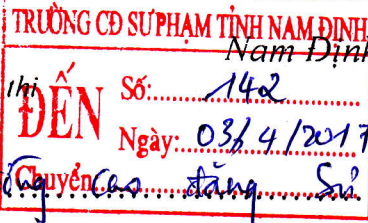 TRƯỜNG CĐ SƯ PHẠM TỈNH NAM ĐỊNH
Nam Định
thi
ĐẾN
Số: 142
Ngày: 03/4/2017
Chuyển: Cao đẳng Sư